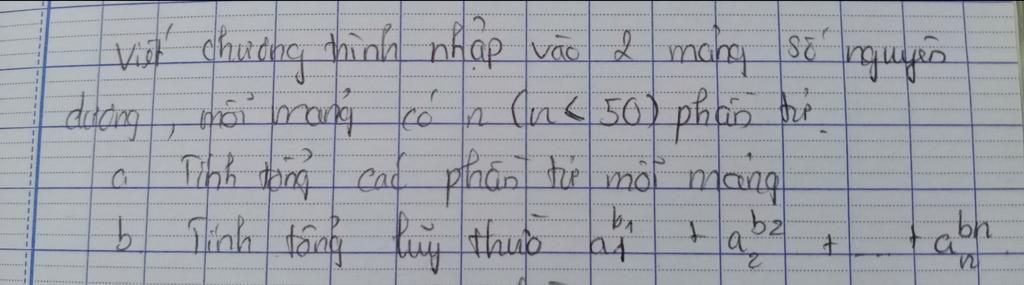 Viết chương trình nhập vào 2 mảng số nguyên
dương, mỗi mảng có n (n < 50) phần tử.
a Tính tổng các phần tử mỗi mảng
b Tính tổng luỹ thừa a₁^b₁ + a₂^b₂ + ... + aₙ^bₙ